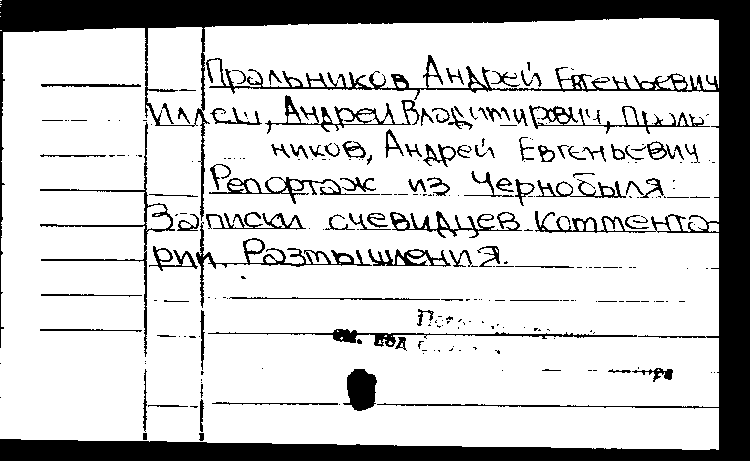 Пральников, Андрей Евгеньевич
Иллеш, Андрей Владимирович, Праль-
ников, Андрей Евгеньевич
Репортаж из Чернобыля:
Записки очевидцев Коммента-
рии. Размышления.
см. под